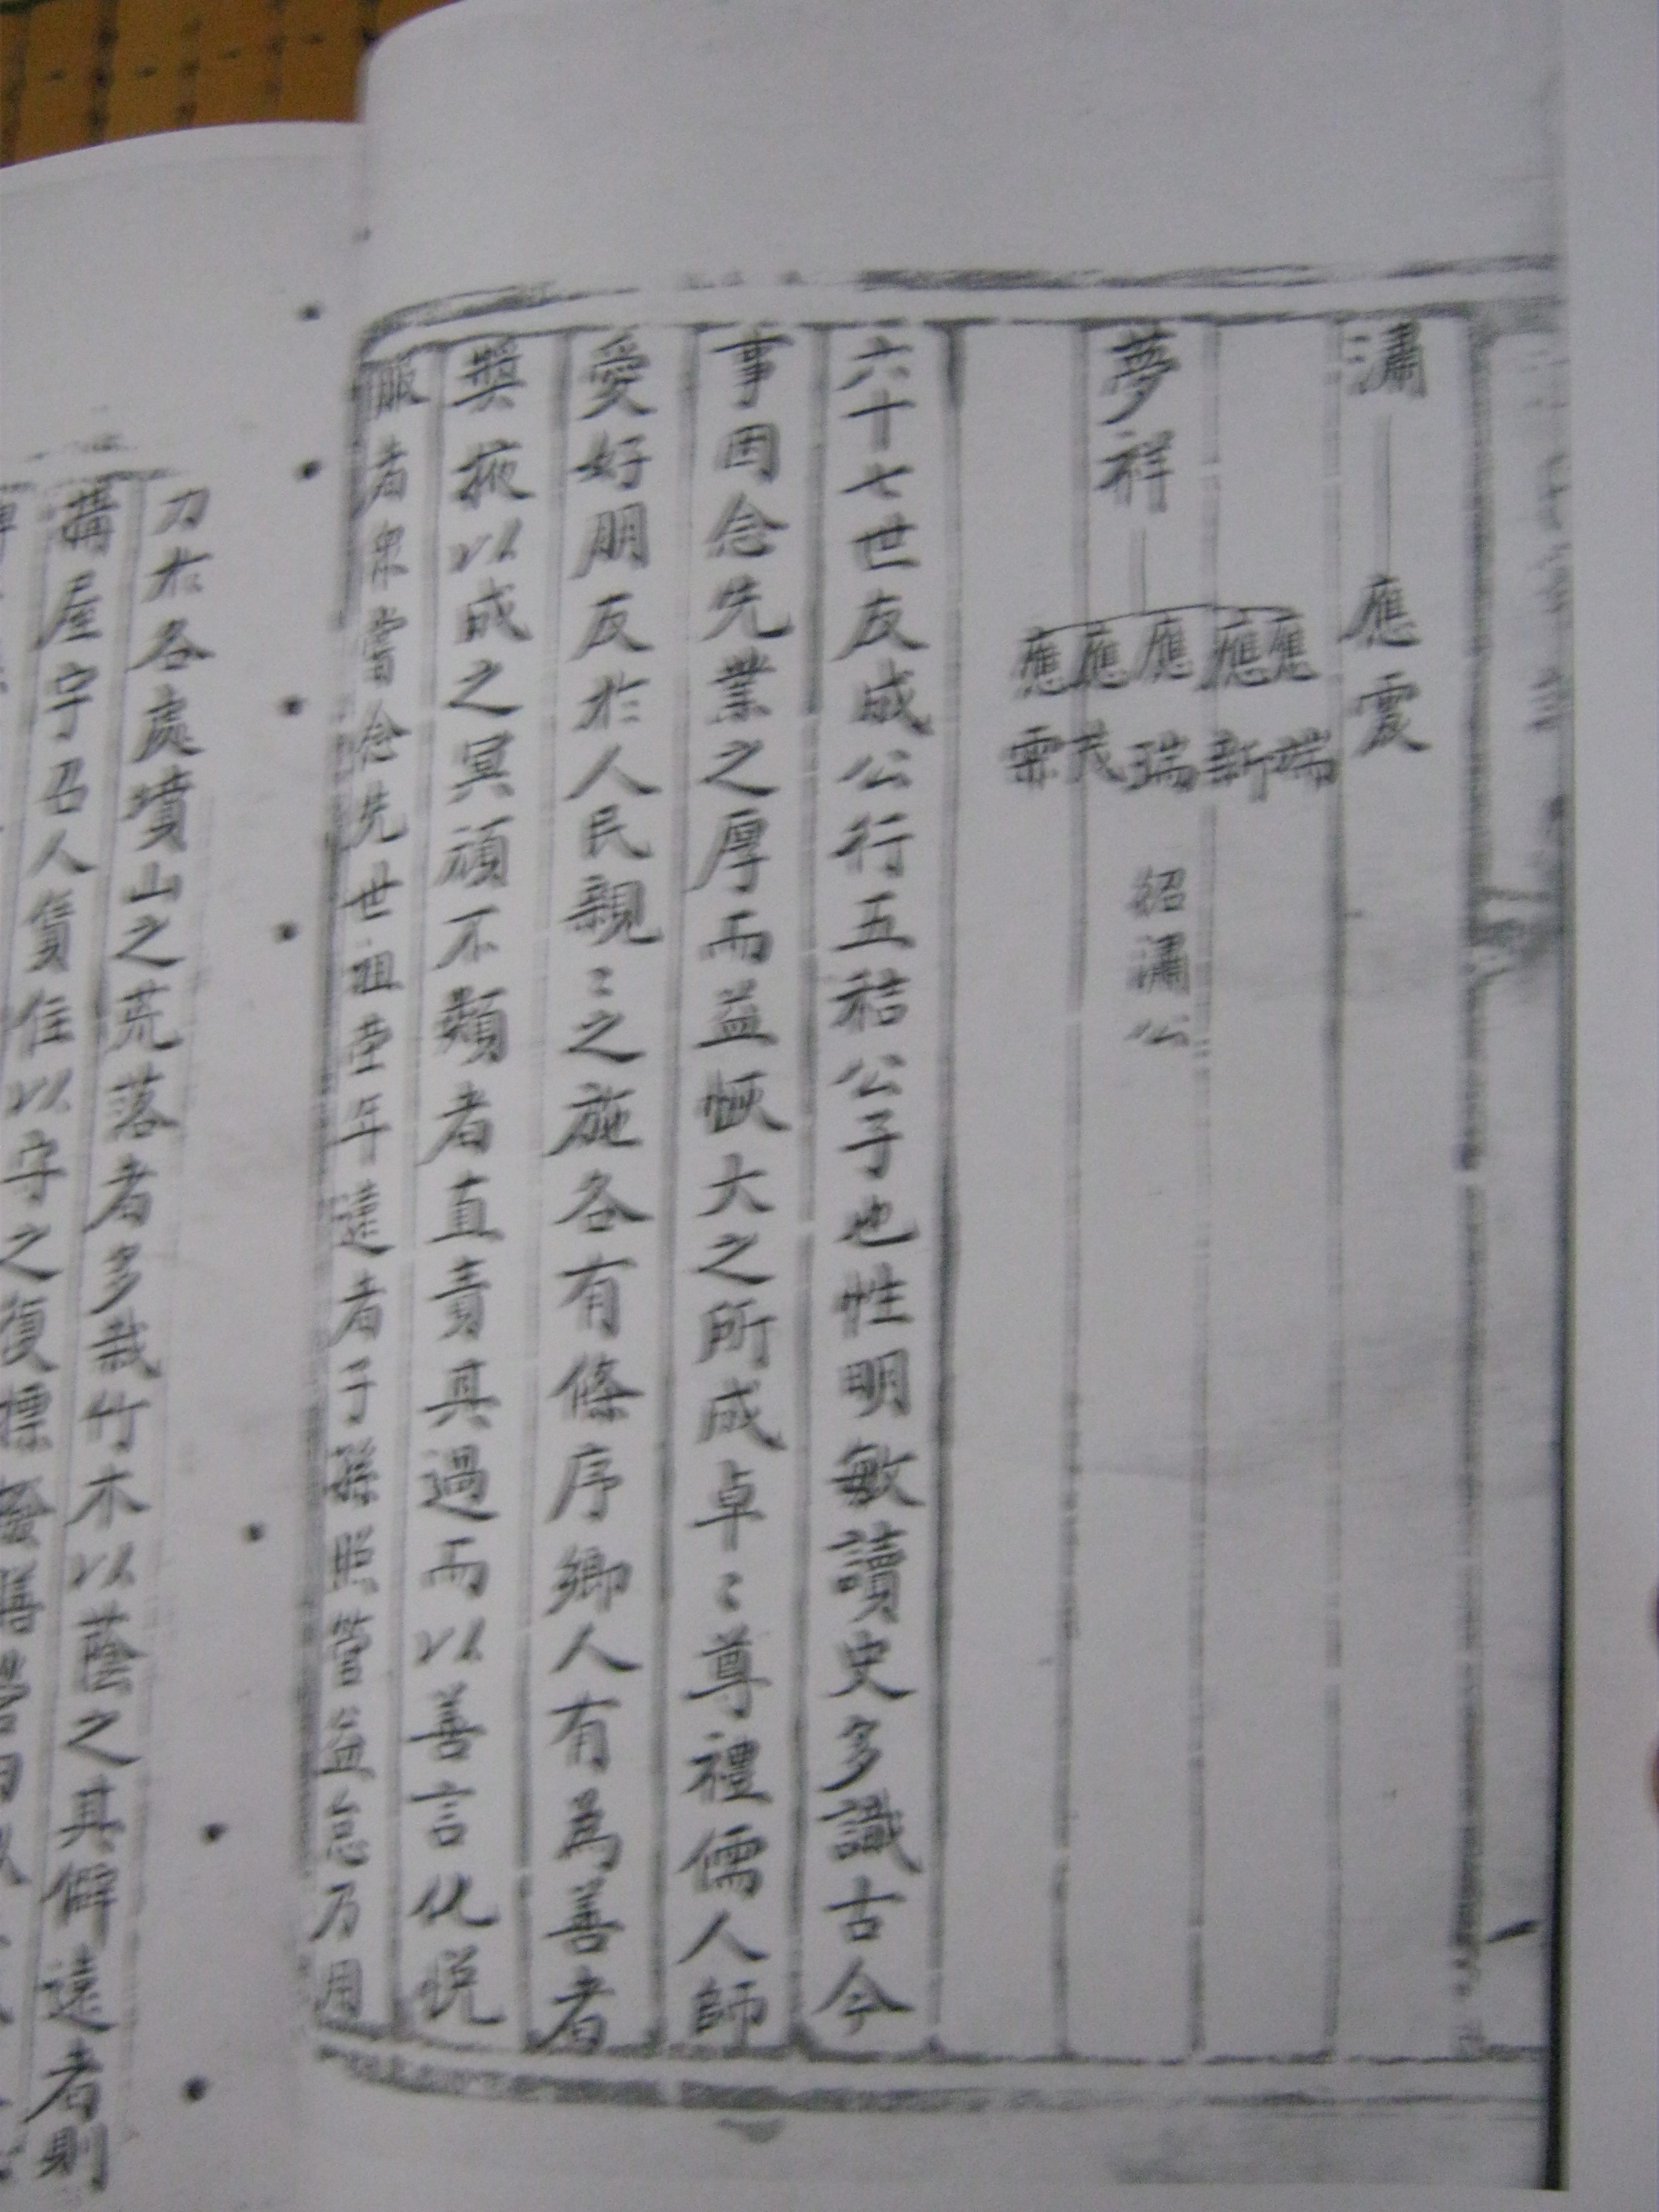 瀟 應震
夢祥 應端 應新 應瑞 應茂 應霖
紹瀟公
六十七世友成公行五秸公子也性明敏讀史多識古今
事因念先業之厚而益恢大之所成卓〻尊禮儒人師
愛好朋友於人民親〻之施各有條序鄉人有為善者
獎掖以成之冥頑不類者直責其過而以善言化悅
服者衆嘗念先世祖塋年遠者子孫照管益怠乃用
力於各處墳山之荒落者多栽竹木以蔭之其僻遠者則
搆屋宇召人賃住以守之復標